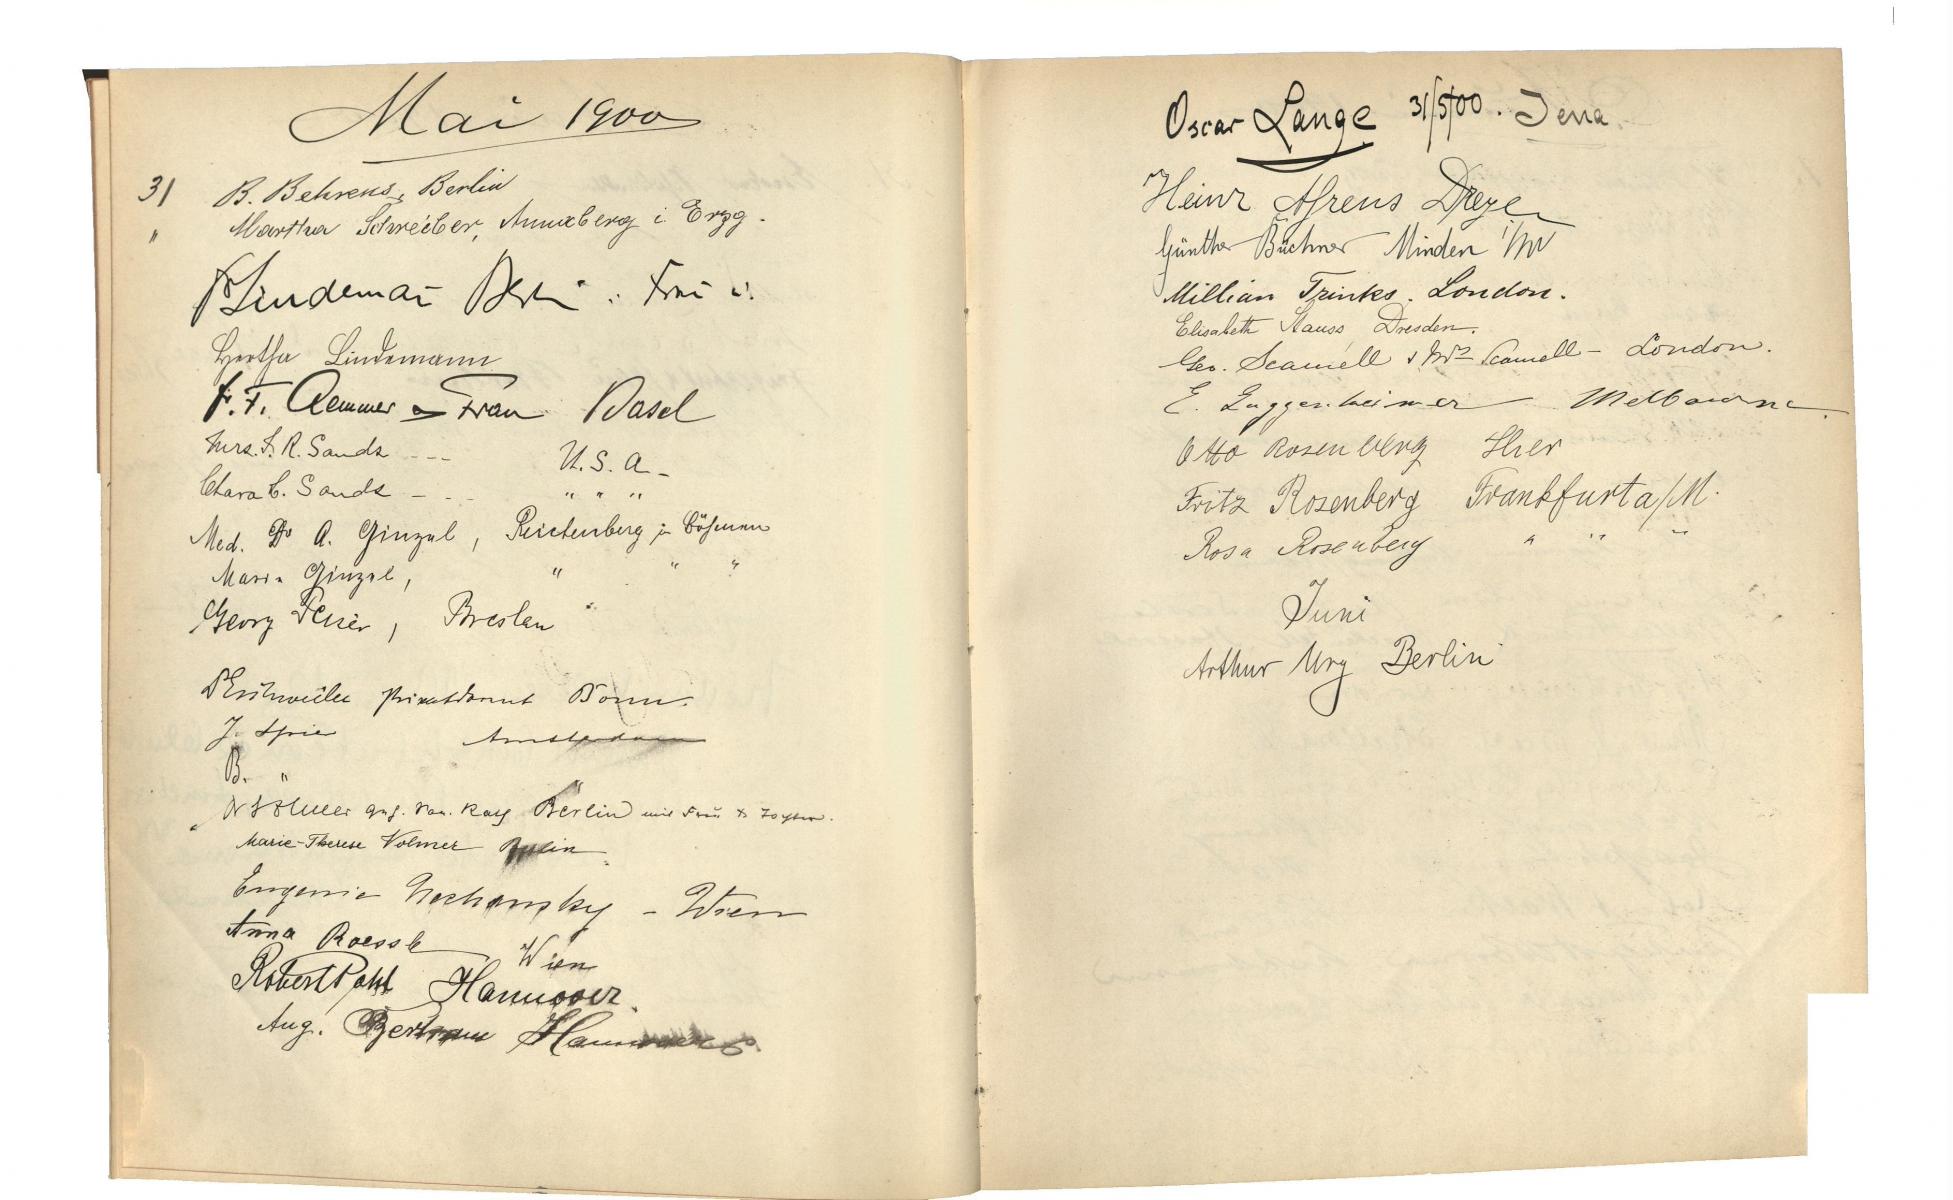 Mai 1900
31 B. Behrens, Berlin
" Martha Schreiber, Annaberg i. Erzg.
Lindemann Berlin Frau u.
Hertha Lindemann
F. T. Aemmer Frau Basel
Mrs. F. R. Sands --- U.S.A.
Clara C. Sands --- " " "
Med. Dr A. Ginzel, Reichenberg in Böhmen
Marie Ginzel, " " "
Georg Peiser, Breslau
Privatdozent Bonn.
J. Spier Amsterdam
B. "
Berlin mit Frau
Marie-Therese Volmer Berlin
Eugenie - Wien
Anna Roessle Wien
Robert Pohl Hannover.
Aug. Bertram Hannover
Oscar Lange 31/5/00. Jena.
Heinr Ahrens Dreye
Günther Büchner Minden i/W
Millian Trinks. London.
Elisabeth Stauss Dresden.
Geo. Scamell & Mrs Scamell - London.
E. Guggenheimer Melbourne.
Otto Rosenberg Hier
Fritz Rosenberg Frankfurt a/M.
Rosa Rosenberg " " "
Juni
Arthur Ury Berlin